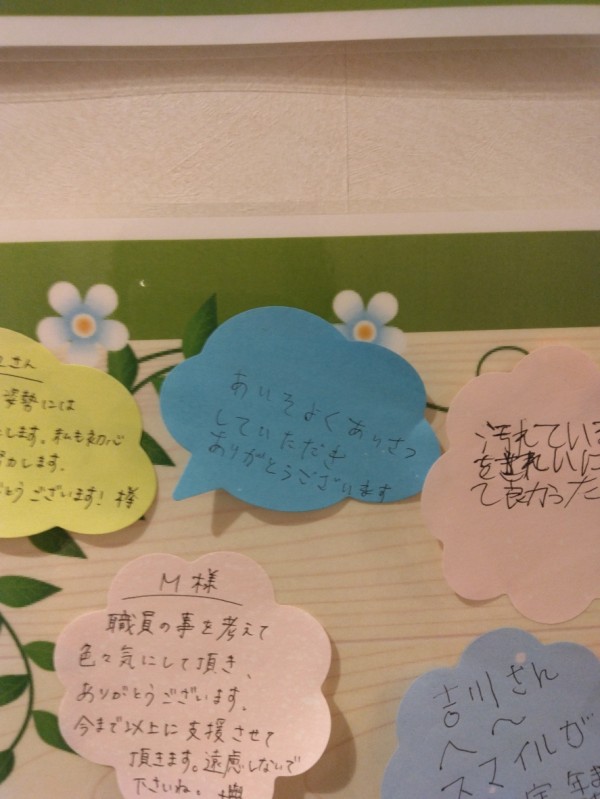 さん
姿勢には
します。私も初心
します。
とうございます!
あいそよくありさつ
していただき
ありがとうございます
汚れている
をきれいに
て良かった
M様
職員の事を考えて
色々気にして頂き、
ありがとうございます。
今まで以上に支援させて
頂きます。遠慮しないで
下さいね。
吉川さん
へ〜
スマイルが